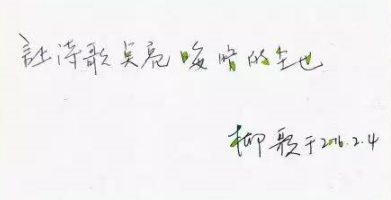 让诗歌点亮晦暗的尘世
柳歌于2016.2.4